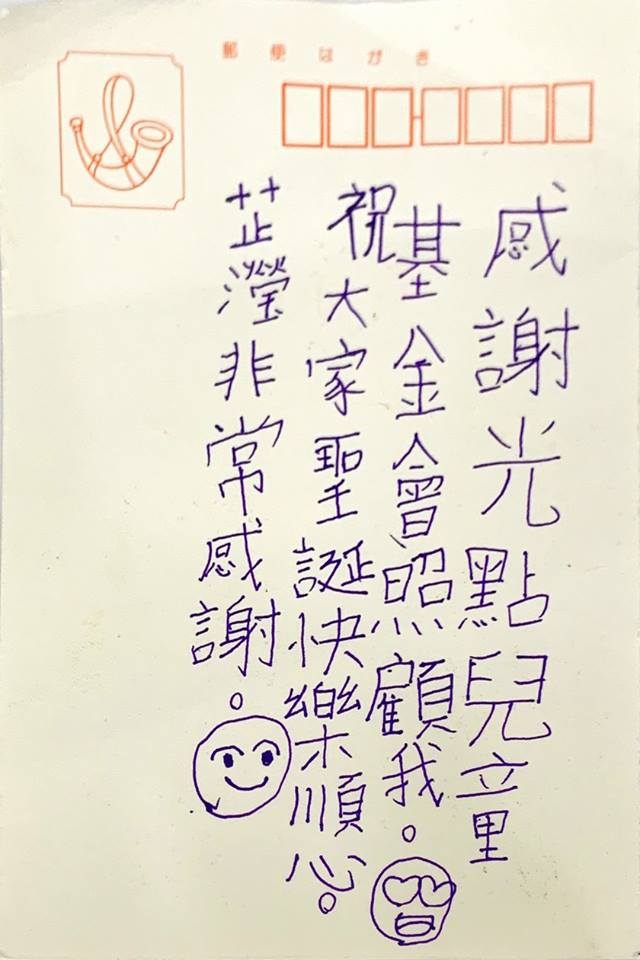 郵便はがき
感謝光點兒童
基金會照顧我。
祝大家聖誕快樂順心。
芷瀅非常感謝。